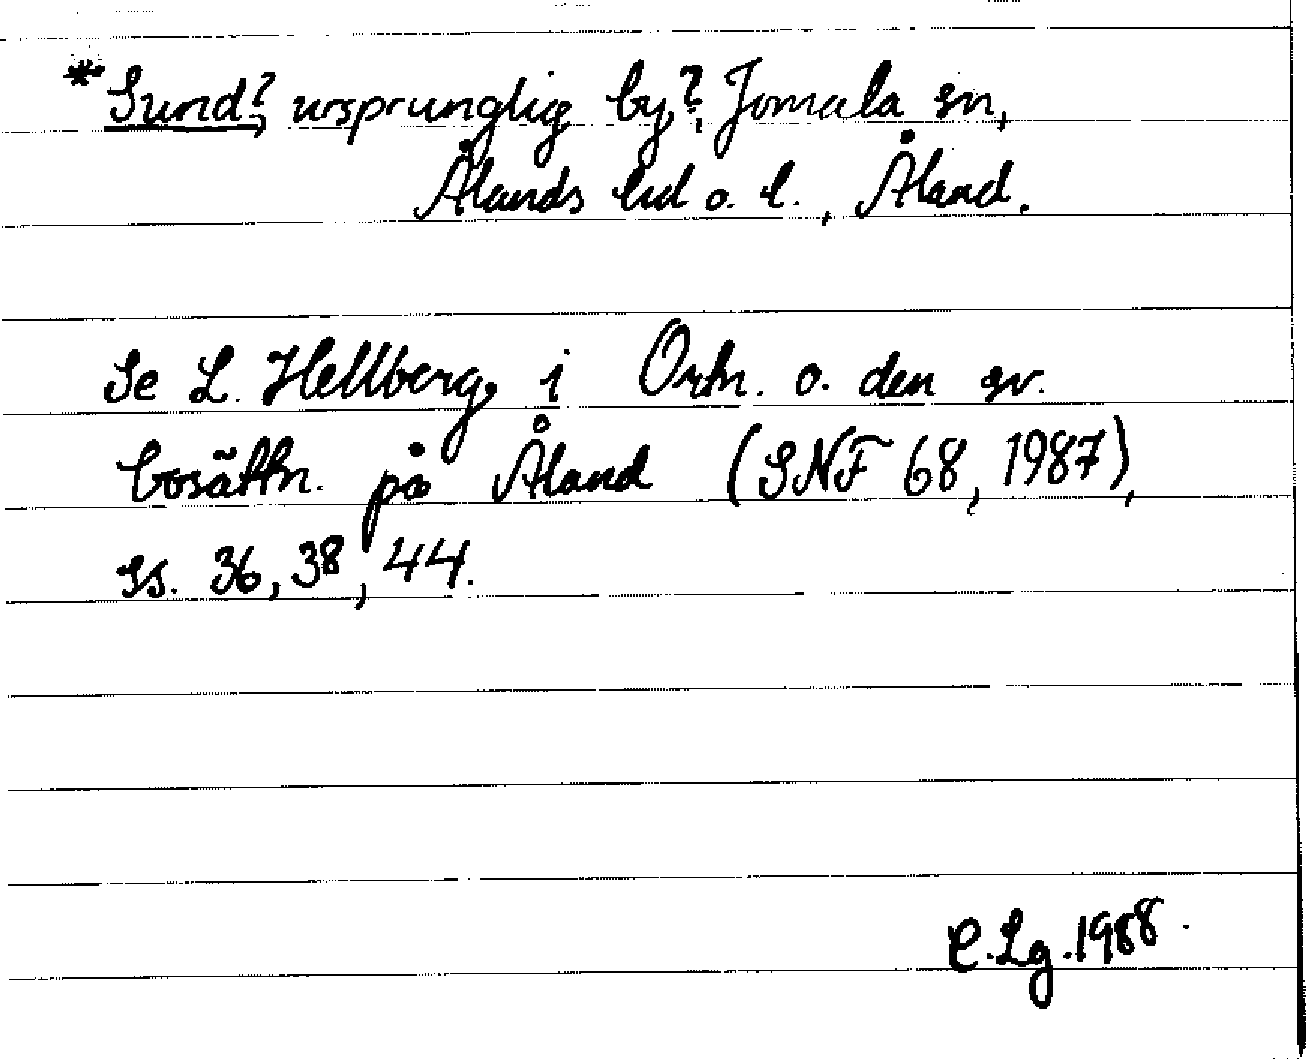 *Sund?, ursprunglig by?, Jomala sn,
Ålands hd o. l., Åland.
Se L. Hellberg, i Ortn. o. den sv.
bosättn. på Åland (SNF 68, 1987),
ss. 36, 38, 44.
C. Lg. 1988.